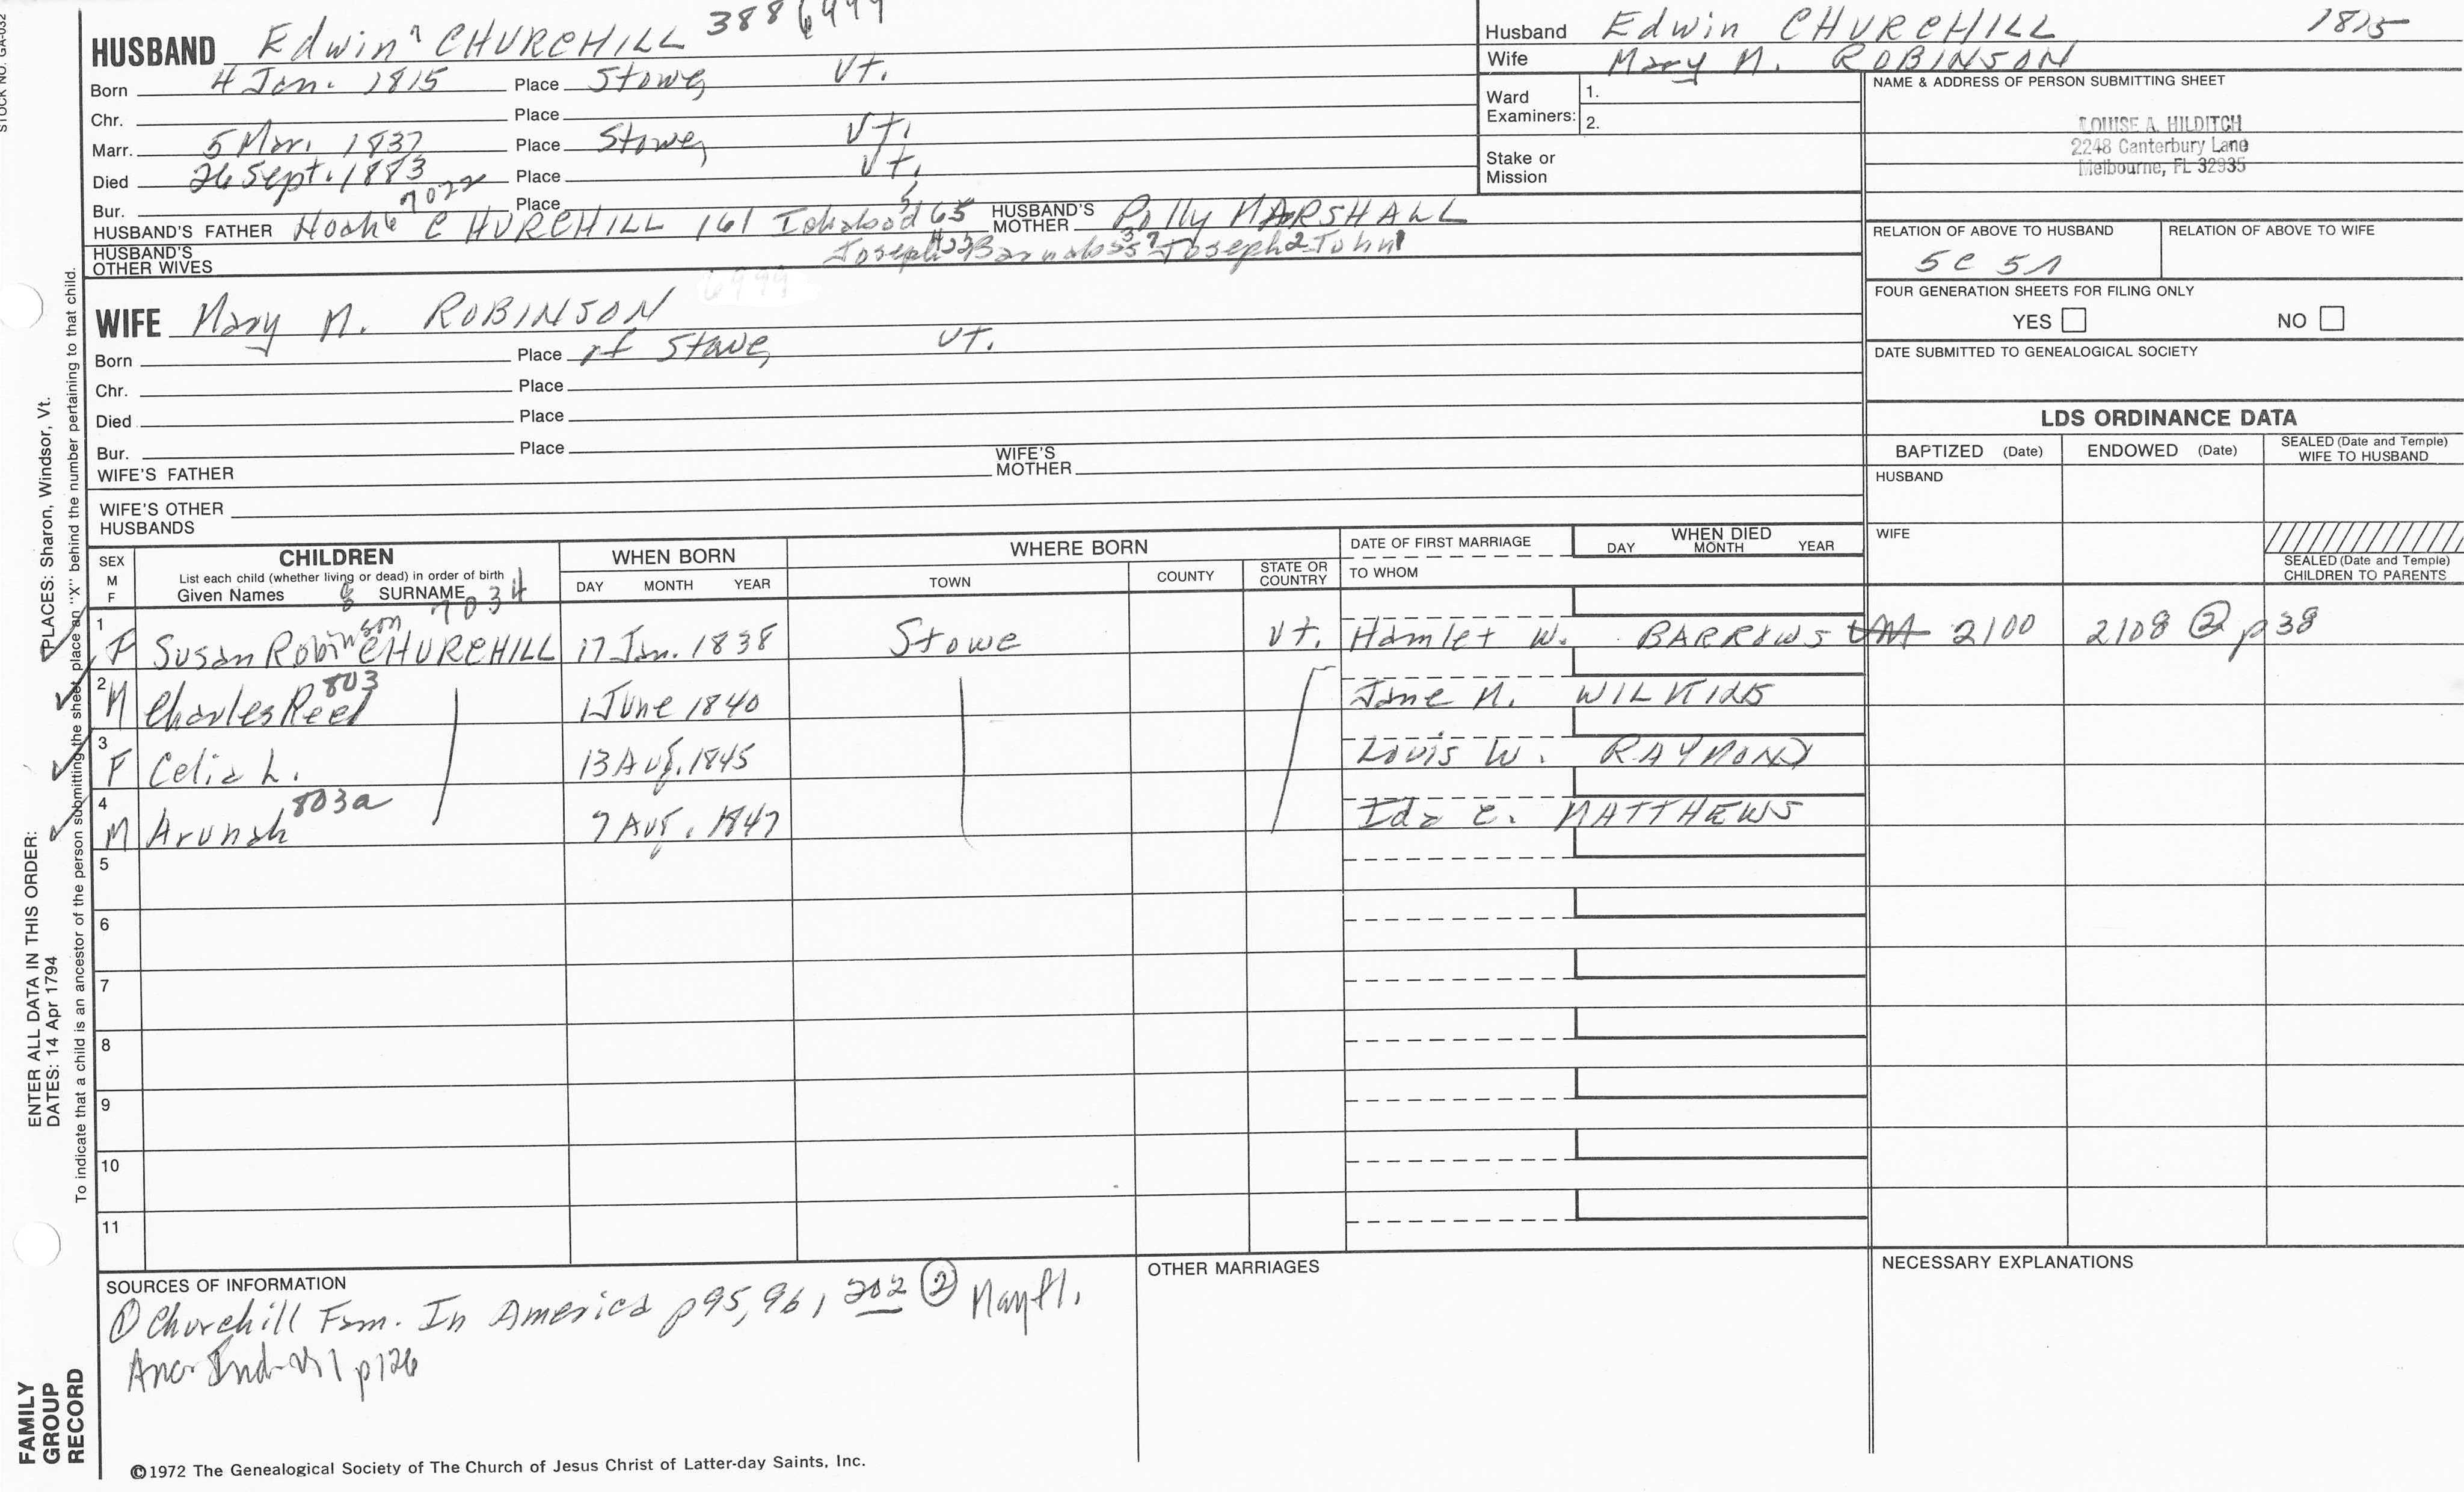 HUSBAND Edwin 7 CHURCHILL 388 6999
Born 4 Jan. 1815 Place Stowe, Vt.
Chr. Place
Marr. 5 Mar. 1837 Place Stowe, Vt.
Died 26 Sept. 1883 Place Vt.
Bur. Place
7022
HUSBAND'S FATHER Noah 6 CHURCHILL 161 Ichabod 5 65 HUSBAND'S MOTHER Polly MARSHALL
HUSBAND'S OTHER WIVES Joseph 4 Barnabas 3 Joseph 2 John 1
WIFE Mary M. ROBINSON
Born Place of Stowe, Vt.
Chr. Place
Died Place
Bur. Place
WIFE'S FATHER WIFE'S MOTHER
WIFE'S OTHER HUSBANDS
Husband Edwin CHURCHILL 1815
Wife Mary M. ROBINSON
Ward Examiners: 1.
2.
Stake or Mission
NAME & ADDRESS OF PERSON SUBMITTING SHEET
LOUISE A. HILDITCH
2248 Canterbury Lane
Melbourne, FL 32935
RELATION OF ABOVE TO HUSBAND RELATION OF ABOVE TO WIFE
5C 5R
FOUR GENERATION SHEETS FOR FILING ONLY
YES NO
DATE SUBMITTED TO GENEALOGICAL SOCIETY
LDS ORDINANCE DATA
BAPTIZED (Date) ENDOWED (Date) SEALED (Date and Temple) WIFE TO HUSBAND
HUSBAND
WIFE
SEALED (Date and Temple) CHILDREN TO PARENTS
SEX M F
CHILDREN
List each child (whether living or dead) in order of birth
Given Names 8 SURNAME 7034
WHEN BORN
DAY MONTH YEAR
WHERE BORN
TOWN COUNTY STATE OR COUNTRY
DATE OF FIRST MARRIAGE
TO WHOM
WHEN DIED
DAY MONTH YEAR
1 F Susan Robinson CHURCHILL 17 Jan. 1838 Stowe Vt. Hamlet W. BARROWS 2100 2108 ② p38
2 M Charles Reed 803 1 June 1840 Jane M. WILKINS
3 F Celia L. 13 Aug. 1845 Louis W. RAYMOND
4 M Arunah 803a 7 Aug. 1847 Ida E. MATTHEWS
5
6
7
8
9
10
11
SOURCES OF INFORMATION
① Churchill Fam. In America p95, 96, 202 ② Mayfl.
Anc. Ind. V1 p126
OTHER MARRIAGES
NECESSARY EXPLANATIONS
©1972 The Genealogical Society of The Church of Jesus Christ of Latter-day Saints, Inc.
STOCK NO. GA-032
ENTER ALL DATA IN THIS ORDER:
DATES: 14 Apr 1794 PLACES: Sharon, Windsor, Vt.
To indicate that a child is an ancestor of the person submitting the sheet, place an "X" behind the number pertaining to that child.
FAMILY
GROUP
RECORD